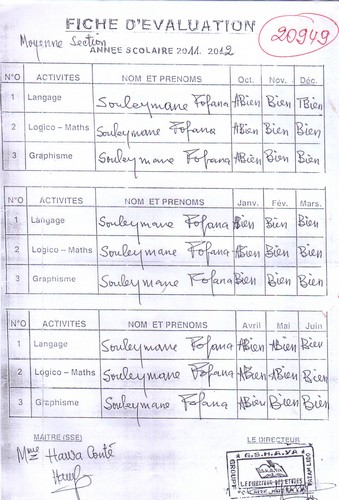 FICHE D'EVALUATION
20949
Moyenne Section
ANNEE SCOLAIRE 2011. 2012
N°O ACTIVITES NOM ET PRENOMS Oct. Nov. Déc.
1 Langage Souleymane Fofana ABien Bien TBien
2 Logico – Maths Souleymane Fofana ABien Bien Bien
3 Graphisme Souleymane Fofana ABien Bien Bien
N°O ACTIVITES NOM ET PRENOMS Janv. Fév. Mars.
1 Langage Souleymane Fofana ABien Bien Bien
2 Logico – Maths Souleymane Fofana ABien Bien Bien
3 Graphisme Souleymane Fofana Bien Bien Bien
N°O ACTIVITES NOM ET PRENOMS Avril Mai Juin
1 Langage Souleymane Fofana ABien ABien Bien
2 Logico – Maths Souleymane Fofana ABien ABien Bien
3 Graphisme Souleymane Fofana ABien Bien Bien
MAITRE (SSE) LE DIRECTEUR
Mme Hawa Conté
G.S.H.A.VA
GROUPE